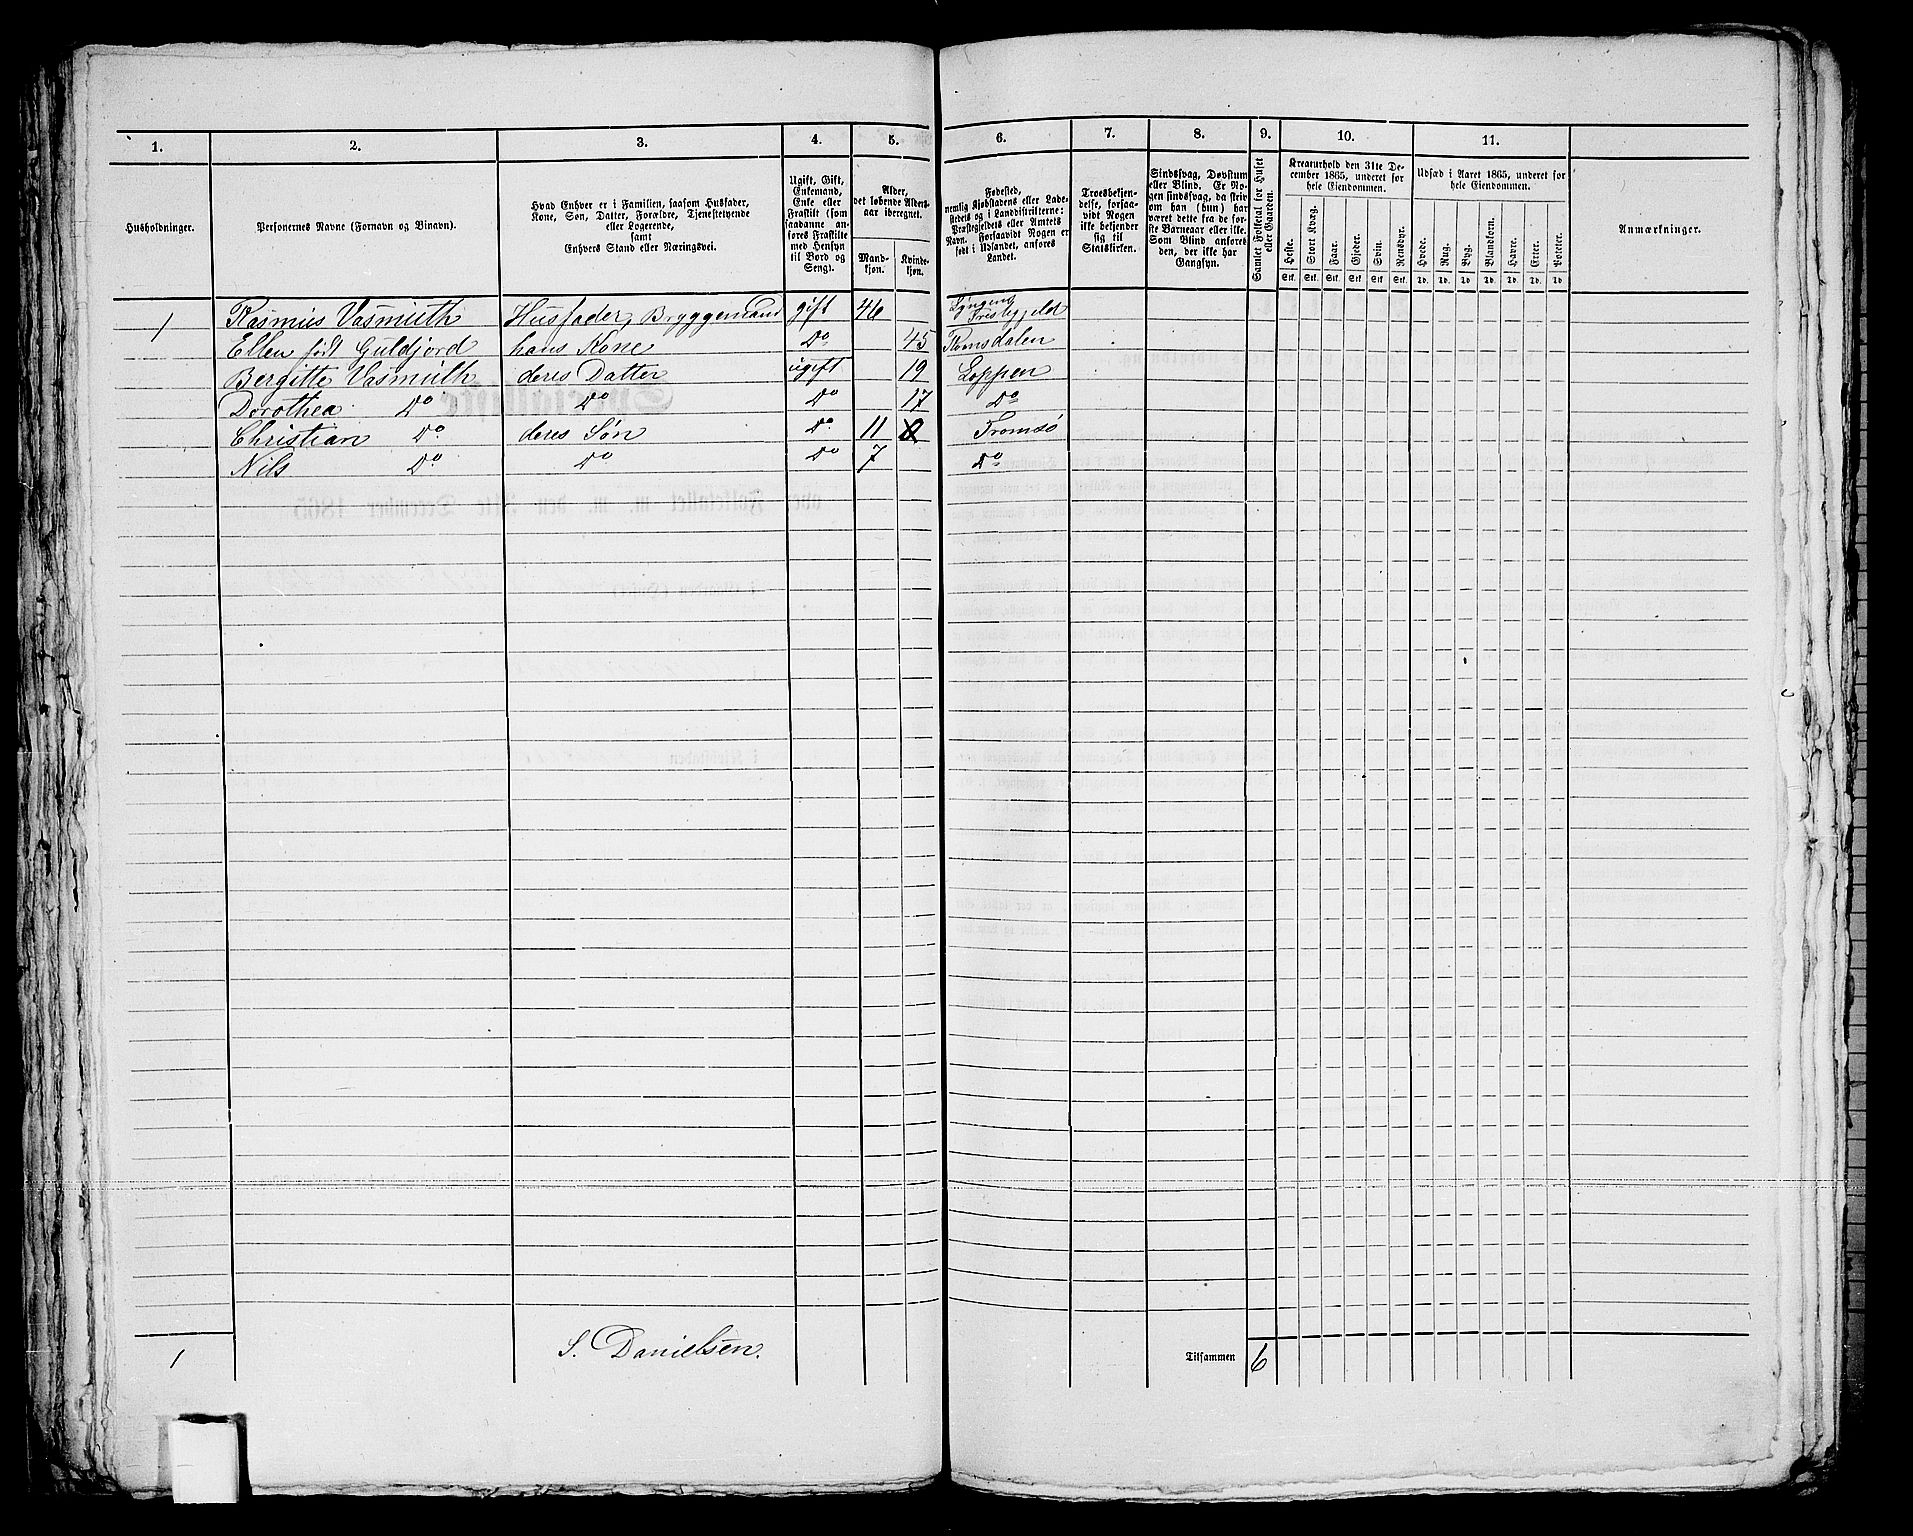 1. 2. 3. 4. 5. 6. 7. 8. 9. 10. 11.
Husholdninger.
Personernes Navne (Fornavn og Binavn).
Hvad Enhver er i Familien, saasom Husfader,
Kone, Søn, Datter, Forældre, Tjenestetyende
eller Logerende,
samt
Enhvers Stand eller Næringsvei.
Ugift, Gift,
Enkemand,
Enke eller
Fraskilt (som
saadanne an-
føres Fraskilte
med Hensyn
til Bord og
Seng).
Alder,
det løbende Alders-
aar iberegnet.
Mand-
kjøn.
Kvinde-
kjøn.
Fødested,
nemlig Kjøbstadens eller Lade-
stedets og i Landdistrikterne:
Præstegjeldets eller Amtets
Navn. Forsaavidt Nogen er
født i Udlandet, anføres
Landet.
Troesbekjen-
delse, forsaa-
vidt Nogen
ikke bekjender
sig til
Statskirken.
Sindssvag, Døvstum
eller Blind. Er No-
gen sindssvag, da skriv
om han (hun) har
været dette fra de før-
ste Barneaar eller ikke.
Som Blind anføres
den, der ikke har
Gangsyn.
Samlet Folketal for Huset
eller Gaarden.
Kreaturhold den 31te De-
cember 1865, underet for
hele Eiendommen.
Heste. Stort Kvæg. Faar. Gjeder. Svin. Rensdyr.
Stk. Stk. Stk. Stk. Stk. Stk.
Udsæd i Aaret 1865, underet for
hele Eiendommen.
Hvede. Rug. Byg. Blandkorn. Havre. Erter. Poteter.
Td. Td. Td. Td. Td. Td. Td.
Anmærkninger.
1 Rasmus Vasmuth Husfader, Bryggemand gift 46 Lyngens Præstegjeld
Ellen født Guldjord hans Kone Do 45 Romsdalen
Bergitte Vasmuth deres Datter ugift 19 Loppen
Dorothea Do Do Do 17 Do
Christian Do. deres Søn Do. 11 Tromsø
Nils Do. Do Do 7 Do
1 S. Danielsen. Tilsammen 6